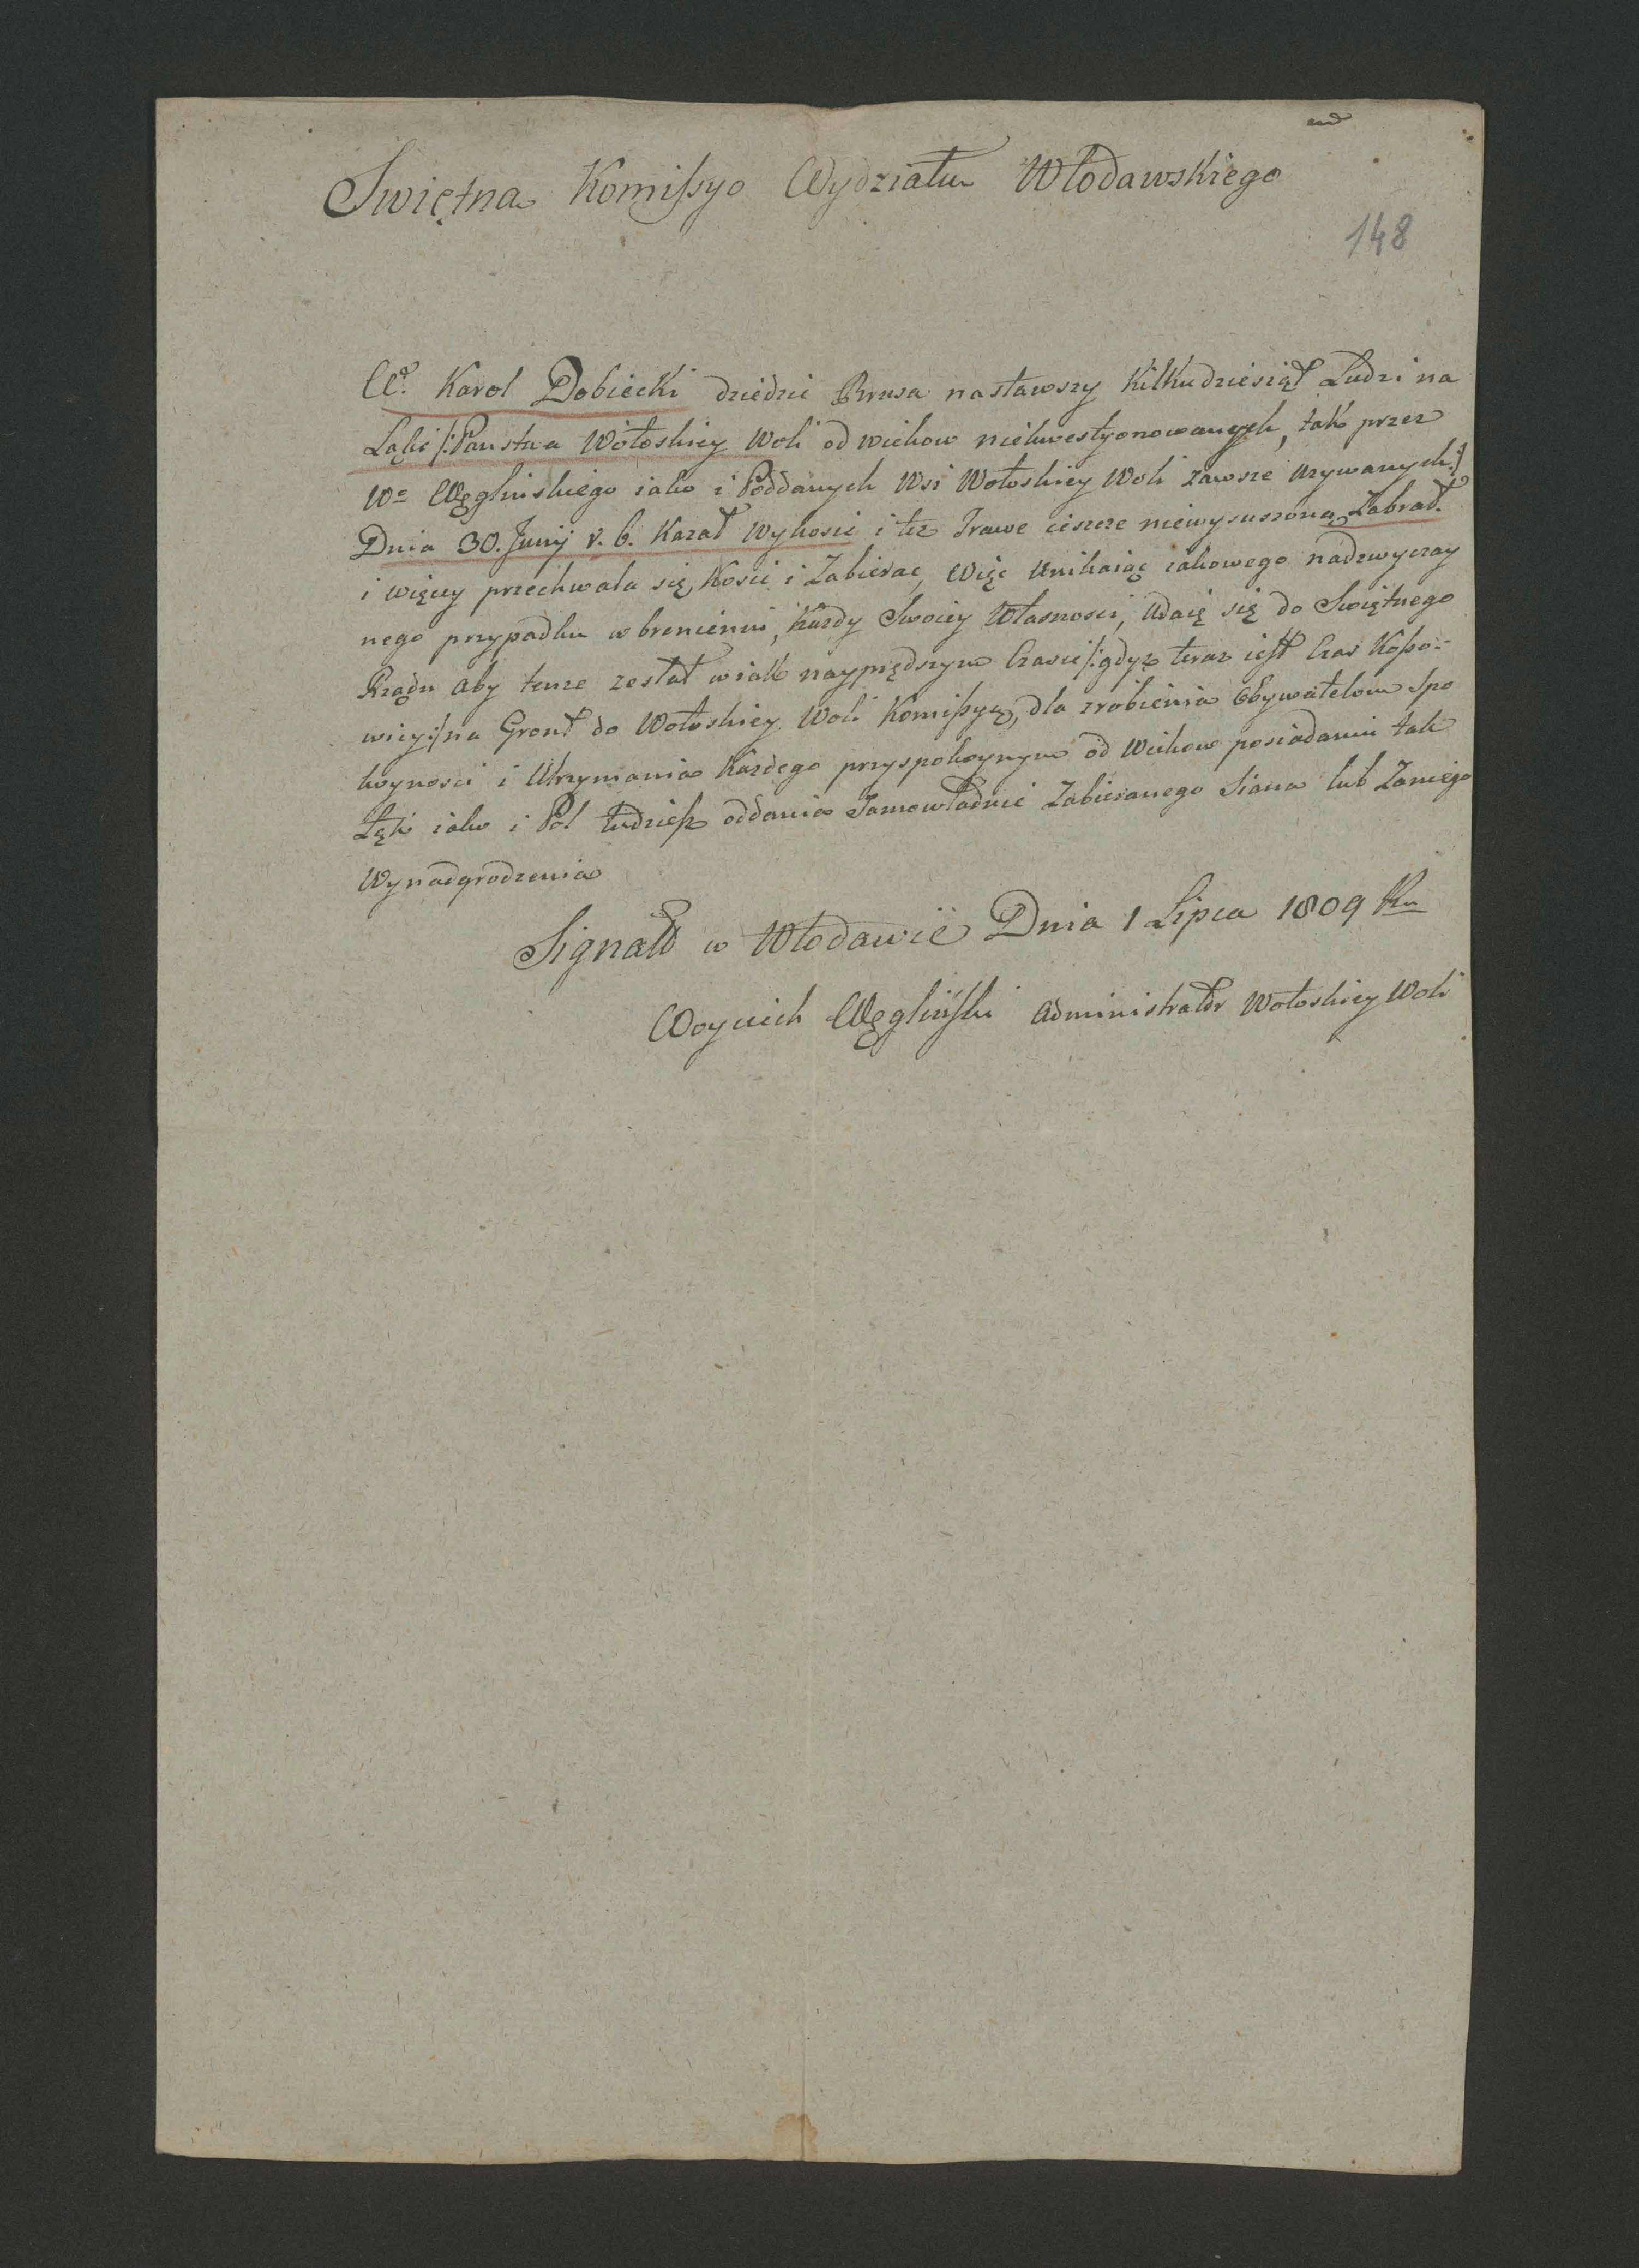 Swiętna Komissyo Wydziału Włodawskiego
148
Wd. Karol Dobiecki dziedzic Brusa nasławszy kilkudziesiąt Ludzi na
Łąki /: Państwa Wołoskiey Woli od wiekow niekwestyonowanych, tak przez
Wo Węglinskiego iako i Poddanych Wsi Wołoskiey Woli zawsze uzywanych :/
Dnia 30. Junij r. b. Kazał Wykosic i tez Trawe ieszcze niewysuszoną Zabrał.
i więcey przechwala się Kosic i Zabierac, Więc Unikaiąc iakowego nadzwyczay
nego przypadku w bronieniu, Kazdy Swoiey Własnosci, Udaię się do Swiętnego
Rządu aby tenze zesłał w iak nayprędszym Czasie /: gdyz teraz iest Czas Koso-
wicy :/ na Gront do Wołoskiey Woli Komissyą, dla zrobienia Obywatelom Spo
koynosci i Utrzymania Kazdego przy spokoynym od Wiekow posiadaniu tak
Łąk iako i Pol tudziesz oddania Samowładnie Zabieranego Siana lub Zaniego
Wynadgrodzenia
Signatt w Włodawie Dnia 1 Lipca 1809 Ru
Woyciech Węgliński Administrator Wołoskiey Woli